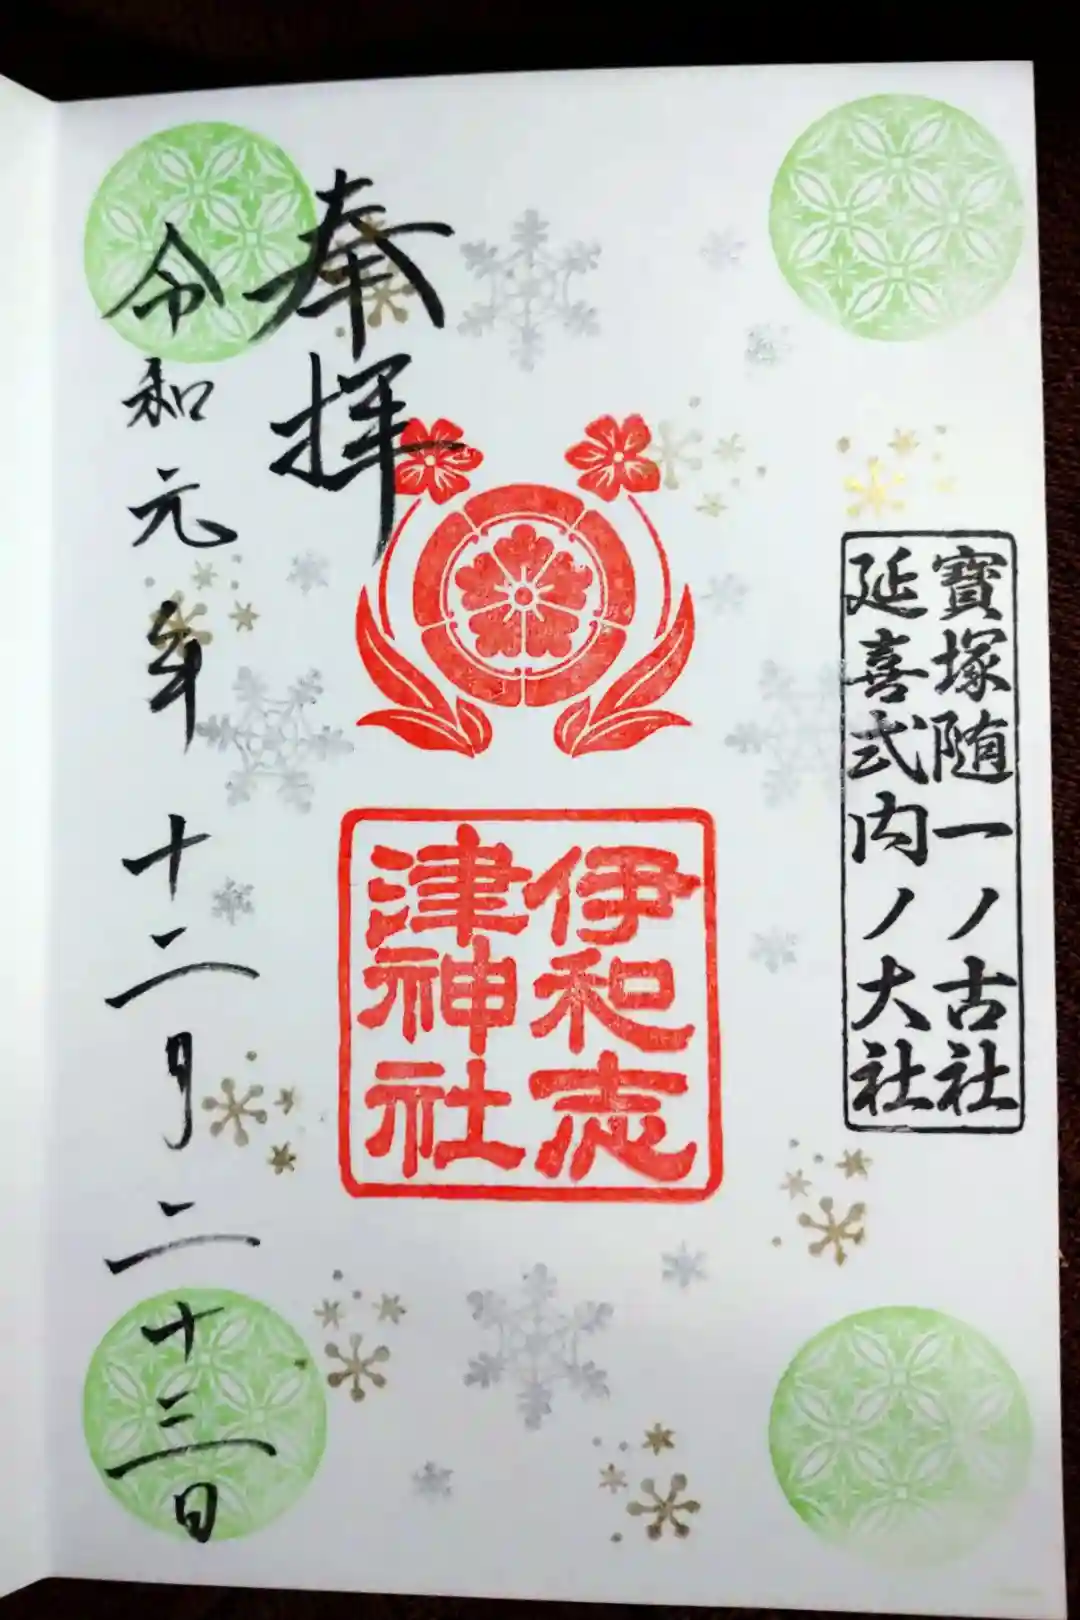 寶塚随一ノ古社
延喜式内ノ大社
伊和志
津神社
奉拝
令和元年十二月二十三日